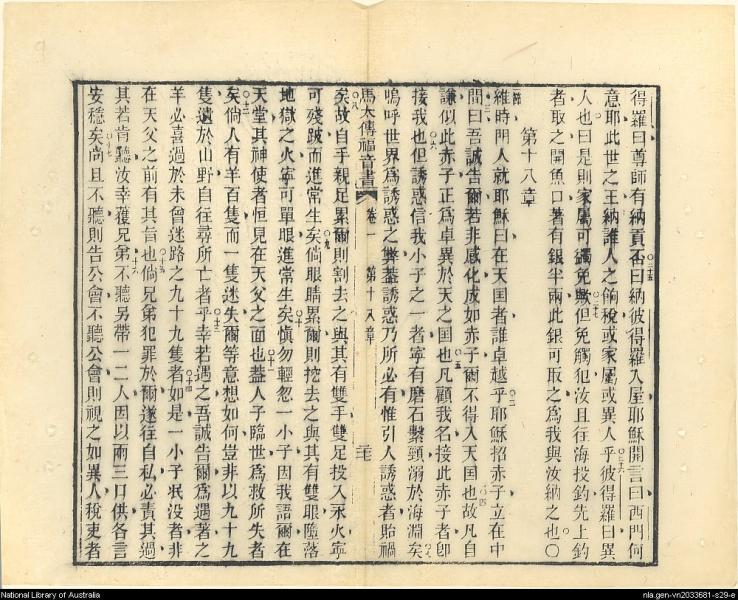 得羅曰尊師有納貢否曰納彼得羅入屋耶穌開言曰西門何
意耶此世之王納誰人之餉稅或家屬或異人乎彼得羅曰異
人也曰是則家屬可獨免歟但免觸犯汝且往海投釣先上釣
者取之開魚口著有銀半兩此銀可取之為我與汝納之也〇
第十八章
維時門人就耶穌曰在天国者誰卓越乎耶穌招赤子立在中
間曰吾誠告爾若非感化成如赤子爾不得入天国也故凡自
謙似此赤子正為卓異於天之国也凡顧我名接此赤子者卽
接我也但誘惑信我小子之一者寧有磨石繫頸溺於海淵矣
嗚呼世界為誘惑之弊蓋誘惑乃所必有惟引人誘惑者貽禍
馬太傳福音書 卷一 第十八章 二七
矣故自手親足累爾則割去之與其有雙手雙足投入永火寧
可殘跛而進常生矣倘眼睛累爾則挖去之與其有雙眼墮落
地獄之火寧可單眼進常生矣慎勿輕忽一小子因我語爾在
天堂其神使者恒見在天父之面也蓋人子臨世為救所失者
矣倘人有羊百隻而一隻迷失爾等意想如何豈非以九十九
隻遺於山野自往尋所亡者乎幸若遇之吾誠告爾為遇著之
羊必喜過於未曾迷路之九十九隻者如是一小子泯没者非
在天父之前有其旨也倘兄弟犯罪於爾遂往自私必責其過
其若肯聽汝幸獲兄弟不聽另帶一二人因以兩三口供各言
安穩矣尚且不聽則告公會不聽公會則視之如異人稅吏者
National Library of Australia
nla.gen-vn2033681-s29-e